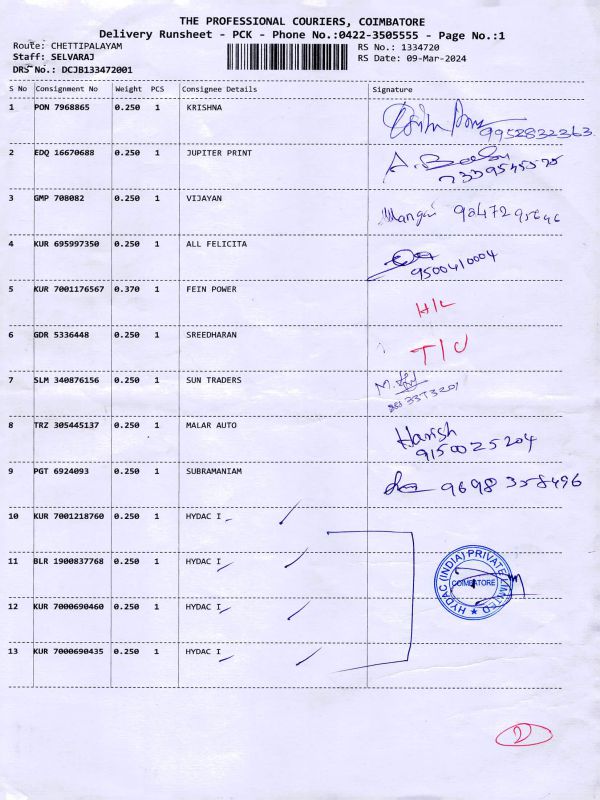 THE PROFESSIONAL COURIERS, COIMBATORE
Delivery Runsheet - PCK - Phone No.:0422-3505555 - Page No.:1
Route: CHETTIPALAYAM
RS No.: 1334720
Staff: SELVARAJ
RS Date: 09-Mar-2024
DRS No.: DCJB133472001
S No Consignment No Weight PCS Consignee Details Signature
1 PON 7968865 0.250 1 KRISHNA 9952832363
2 EDQ 16670688 0.250 1 JUPITER PRINT
3 GMP 708082 0.250 1 VIJAYAN Mangai
4 KUR 695997350 0.250 1 ALL FELICITA 9500410004
5 KUR 7001176567 0.370 1 FEIN POWER H/L
6 GDR 5336448 0.250 1 SREEDHARAN T/U
7 SLM 340876156 0.250 1 SUN TRADERS
8 TRZ 305445137 0.250 1 MALAR AUTO Harish
9150025204
9 PGT 6924093 0.250 1 SUBRAMANIAM 9698358496
10 KUR 7001218760 0.250 1 HYDAC I
11 BLR 1900837768 0.250 1 HYDAC I
12 KUR 7000690460 0.250 1 HYDAC I
13 KUR 7000690435 0.250 1 HYDAC I
HYDAC (INDIA) PRIVATE LIMITED
COIMBATORE
2